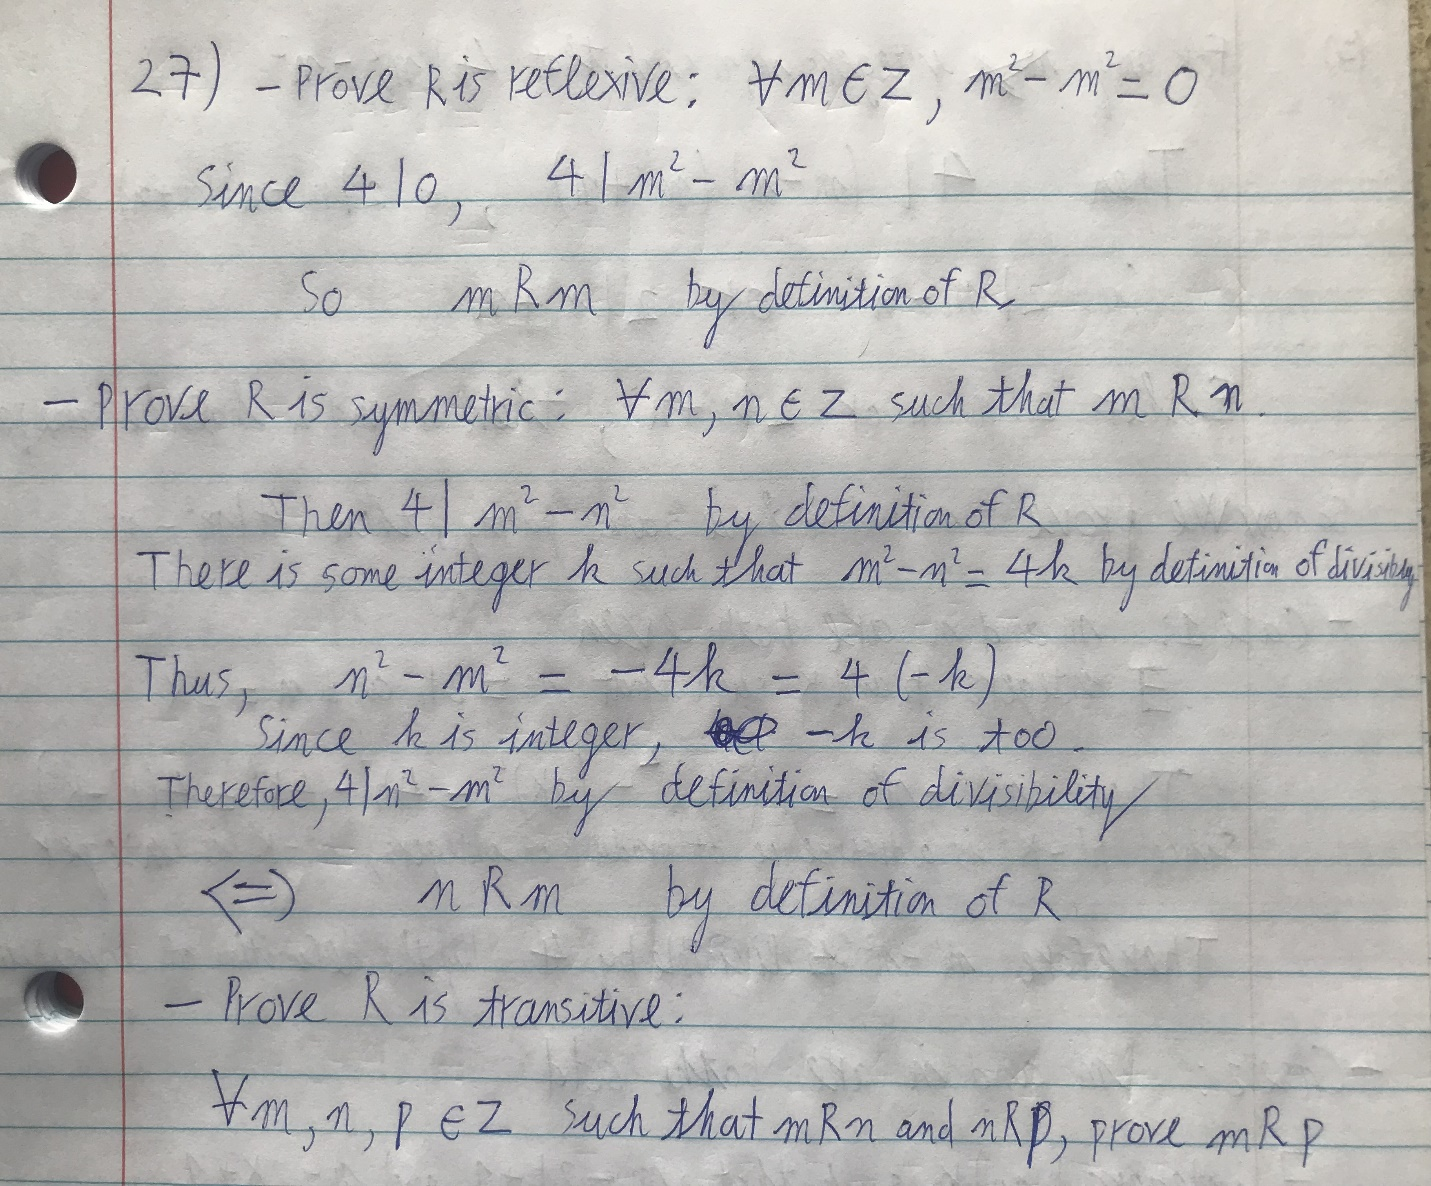 27) - Prove R is reflexive: ∀m ∈ Z, m² - m² = 0
Since 4|0, 4|m² - m²
So m R m by definition of R
- Prove R is symmetric: ∀m, n ∈ Z such that m R n.
Then 4| m² - n² by definition of R
There is some integer k such that m² - n² = 4k by definition of
Thus, n² - m² = -4k = 4 (-k)
Since k is integer, -k is too.
Therefore, 4|n² - m² by definition of divisibility
<=> n R m by definition of R
- Prove R is transitive:
∀m, n, p ∈ Z such that m R n and n R p, prove m R p